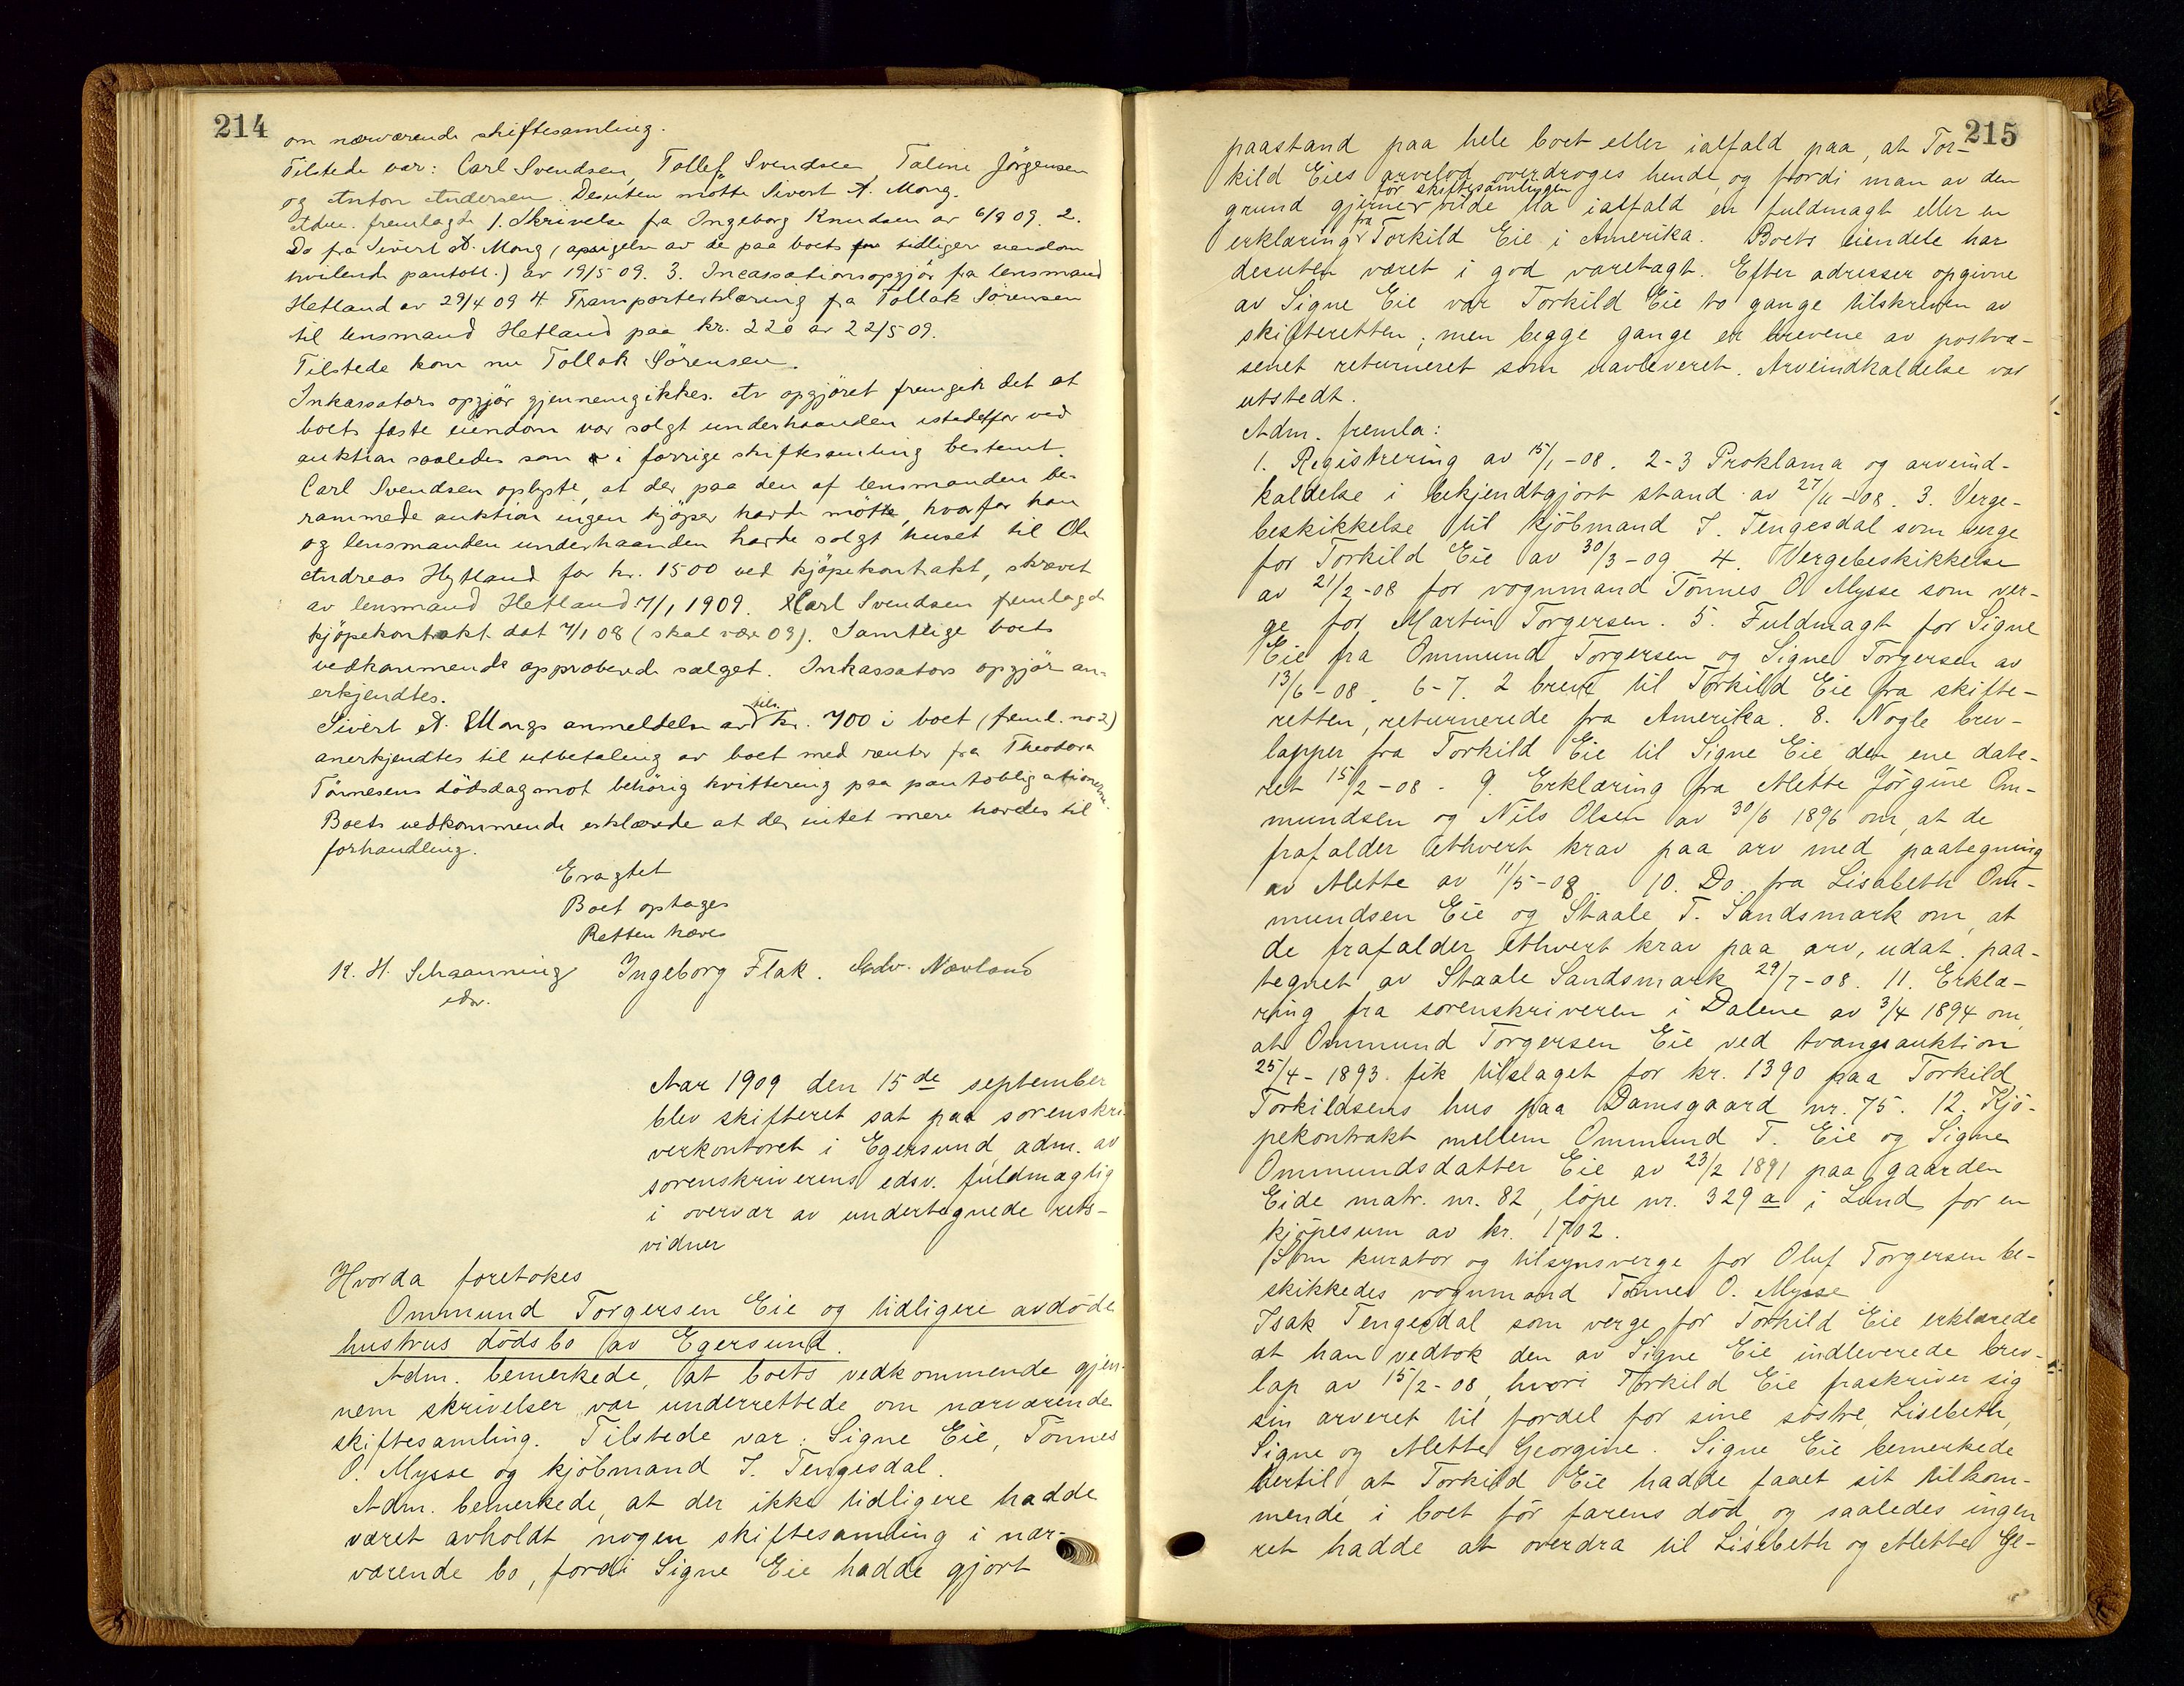 214
om nærværende skiftesamling.
Tilstede var: Carl Svendsen, Tollef Svendsen Taline Jörgensen
og Anton Andersen. Desuten mötte Sivert A. Mong.
Adm. fremlagde 1. Skrivelse fra Ingeborg Knudsen av 6/8 09. 2.
Do fra Sivert A. Mong (opsigelse av de paa boets tidligere eiendom
hvilende pantobl.) av 19/5 09. 3. Incassationsopgjör fra lensmand
Hetland av 29/4 09 4 Transporterklæring fra Tollak Sörensen
til lensmand Hetland paa kr. 220 av 22/5 09.
Tilstede kom nu Tollak Sörensen.
Inkassators opgjör gjennemgikkes. Av opgjöret fremgik det at
boets faste eiendom var solgt underhaanden istedetfor ved
auktion saaledes som i forrige skiftesamling bestemt.
Carl Svendsen oplyste, at der paa den af lensmanden be-
rammede auktion ingen kjöper havde mötte, hvorfor han
og lensmanden underhaanden havde solgt huset til Ole
Andreas Hytland for kr. 1500 ved kjöpekontrakt, skrevet
av lensmand Hetland 7/1 1909. Carl Svendsen fremlagde
kjöpekontrakt dat 7/1 08 (skal være 09). Samtlige boets
vedkommende approberede salget. Inkassators opgjör an-
erkjendtes.
Sivert A. Mongs anmeldelse av tilg. kr. 700 i boet (freml. no 2)
anerkjendtes til utbetaling av boet med renter fra Theodora
Tönnesens dödsdag mot behörig kvittering paa pantobligationen.
Boets vedkommende erklærede at de intet mere havde til
forhandling.
Eragtet
Boet optages
Retten hæves
K. H. Schaanning Ingeborg Flak. Edv. Nævland
edsv.
Aar 1909 den 15de september
blev skifteret sat paa sorenskri-
verkontoret i Egersund, adm. av
sorenskriverens edsv. fuldmægtig
i overvær av undertegnede rets-
vidner
Hvorda foretokes
Ommund Torgersen Eie og tidligere avdöde
hustrus dödsbo av Egersund.
Adm. bemerkede, at boets vedkommende gjen-
nem skrivelser var underrettede om nærværende
skiftesamling. Tilstede var: Signe Eie, Tönnes
O. Mysse og kjöbmand I. Tengesdal.
Adm. bemerkede, at der ikke tidligere hadde
været avholdt nogen skiftesamling i nær-
værende bo, fordi Signe Eie hadde gjort
215
paastand paa hele boet eller ialfald paa, at Tor-
kild Eies arvelod overdroges hende, og fordi man av den
grund gjerne för skiftesamlingen vilde ha ialfald en fuldmagt eller en
erklæring fra Torkild Eie i Amerika. Boets eiendele har
desuten været i god varetægt. Efter adresser opgivne
av Signe Eie var Torkild Eie to gange tilskreven av
skifteretten; men begge gange er brevene av postvæ-
senet returneret som uavleveret. Arveindkaldelse var
utstedt.
Adm. fremla:
1. Registrering av 15/1-08. 2-3 Proklama og arveind-
kaldelse i bekjendtgjort stand av 27/11-08. 3. Verge-
beskikkelse til kjöbmand I. Tengesdal som verge
for Torkild Eie av 30/3-09 4. Vergebeskikkelse
av 21/2-08 for vognmand Tönnes O Mysse som ver-
ge for Martin Torgersen. 5. Fuldmagt for Signe
Eie fra Ommund Torgersen og Signe Torgersen av
13/6-08. 6-7. 2 breve til Torkild Eie fra skifte-
retten, returnerede fra Amerika. 8. Nogle brev-
lapper fra Torkild Eie til Signe Eie, den ene date-
ret 15/2-08. 9. Erklæring fra Mette Jörgine Om-
mundsen og Nils Olsen av 30/6 1896 om, at de
frafalder ethvert krav paa arv med paategning
av Mette av 11/5-08. 10. Do. fra Lisabeth Om-
mundsen Eie og Staale T. Sandsmark om, at
de frafalder ethvert krav paa arv, udat. paa-
tegnet av Staale Sandsmark 29/7-08. 11. Erklæ-
ring fra sorenskriveren i Dalene av 3/4 1894 om,
at Ommund Torgersen Eie ved tvangsauktion
25/4-1893 fik tilslaget for kr. 1390 paa Torkild
Torkildsens hus paa Damsgaard nr. 75. 12. Kjö-
pekontrakt mellem Ommund T. Eie og Signe
Ommundsdatter Eie av 23/2 1891 paa gaarden
Eide matr. nr. 82, löpe nr. 329 a i Lund for en
kjöpesum av kr. 1702.
Som kurator og tilsynsverge for Oluf Torgersen be-
skikkedes vognmand Tönnes O. Mysse
Isak Tengesdal som verge for Torkild Eie erklærede
at han vedtok den av Signe Eie indleverede brev-
lap av 15/2-08, hvori Torkild Eie fraskriver sig
sin arveret til fordel for sine söstre, Lisebeth,
Signe og Mette Georgine. Signe Eie bemerkede
hertil, at Torkild Eie hadde faaet sit tilkom-
mende i boet för farens död, og saaledes ingen
ret hadde at overdra til Lisebeth og Mette Ge-